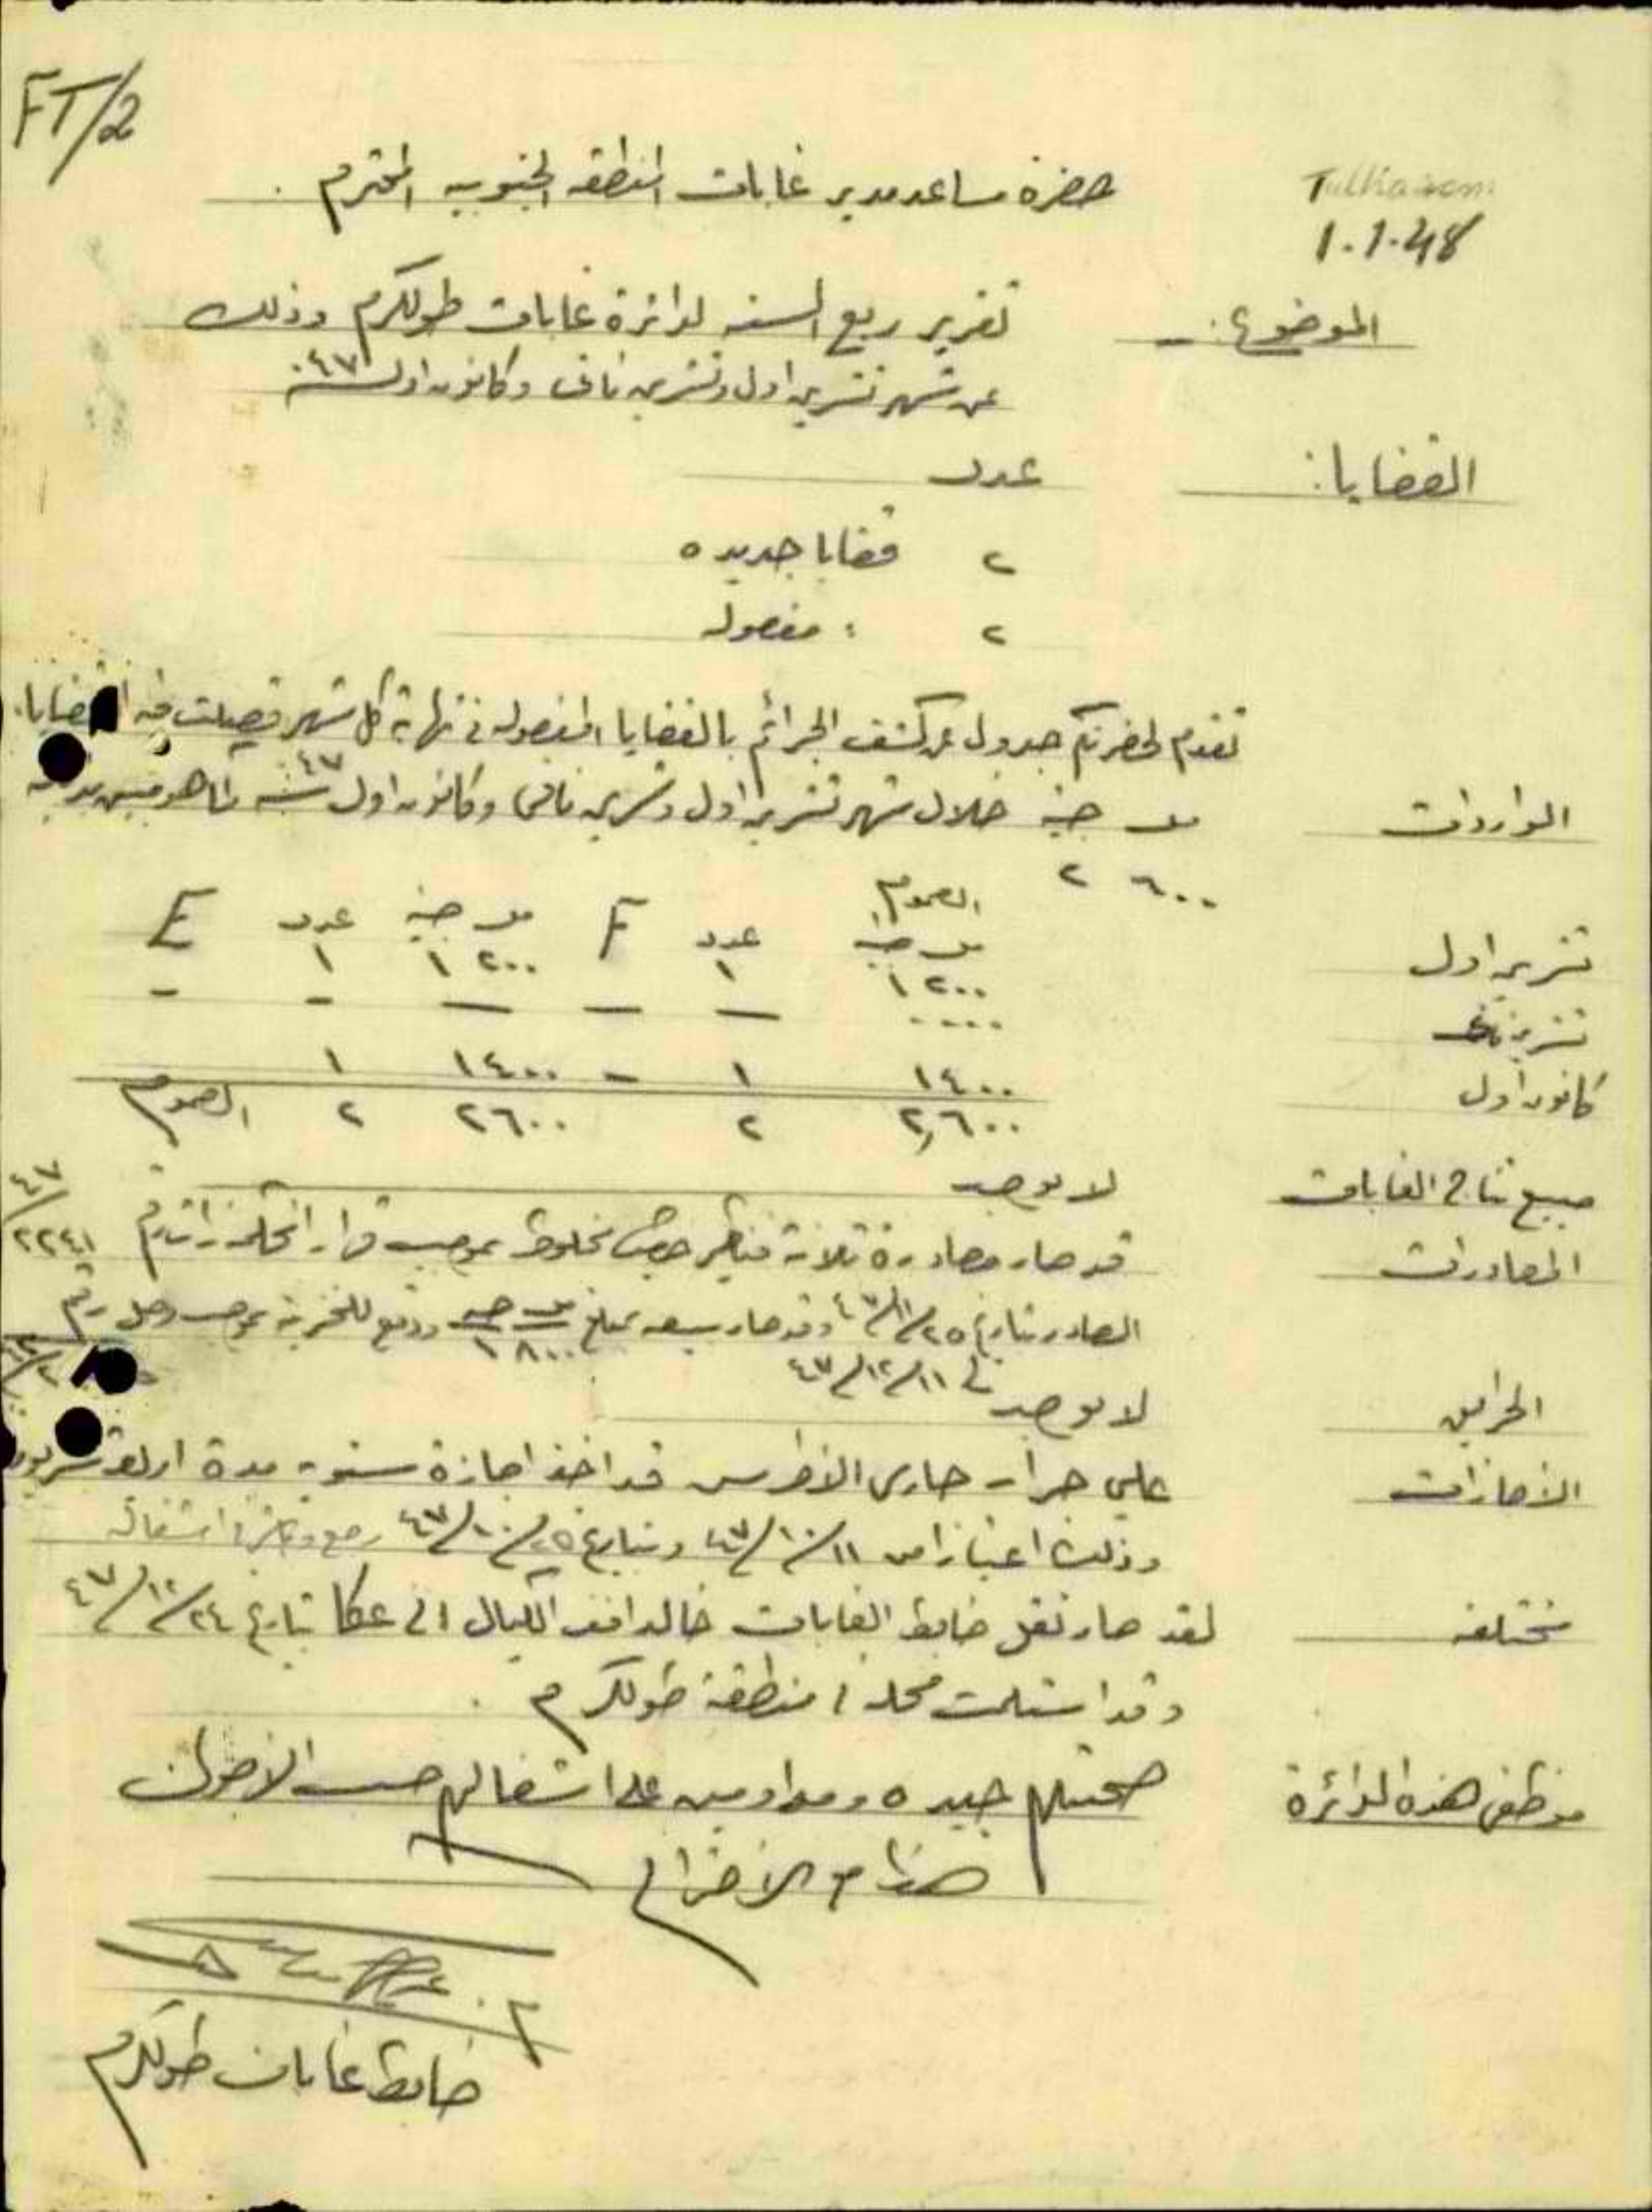 FT/2
Tulkarem
1.1.48
حضرة مساعد مدير غابات المنطقه الجنوبيه المحترم .
الموضوع :- تقرير ربع السنه لدائرة غابات طولكرم وذلك
عن شهر تشرين اول وتشرين ثاني وكانون اول سنة ٤٧
القضايا : عدد
٢ قضايا جديده
٢ : مفصوله
تقدم لحضرتكم جدول عن كشف الجرائم بالقضايا المفصوله في نهاية كل شهر فصلت فيه القضايا .
الواردات مل جنيه خلال شهر تشرين اول وتشرين ثاني وكانون اول سنة ٤٧ كما هو مبين
٦٠٠ ٢
المجموع
مل جنيه عدد F مل جنيه عدد E
تشرين اول ٢٠٠ ١ ١ ٢٠٠ ١ ١
تشرين ثاني .... — — — - -
كانون اول ١٤٠٠ ١ - ١٤٠٠ ١
٢,٦٠٠ ٢ ٢٦٠٠ ٢ المجموع
مبيع نتاج الغابات لا يوجد
المصادرات قد صار مصادرة ثلاثة قناطير حطب مخلوط بموجب قرار المحكمة رقم ٢٢٤١/٤٧
الصادر بتاريخ ٢٥/١١/٤٧ وقد صار بيعه بمبلغ مل جنيه ٨٠٠ ١ ودفع للخزينة بموجب وصل رقم
في ١١/١٢/٤٧
الحرايق لا يوجد
الأجازات علي جرار حارس الأحراش قد اخذ اجازة سنوية مدة اربعة عشر يوم
وذلك اعتبارا من ١١/١٠/٤٧ وبتاريخ ٢٥/١٠/٤٧ رجع وباشر اشغاله
مختلفه لقد صار نقل ضابط الغابات خالد افندي الكيال الى عكا بتاريخ ٢٤/١٢/٤٧
وقد استلمت محله منطقة طولكرم .
موظفي هذه الدائرة صحتهم جيده ومداومين على اشغالهم حسب الاصول
ضابط غابات طولكرم